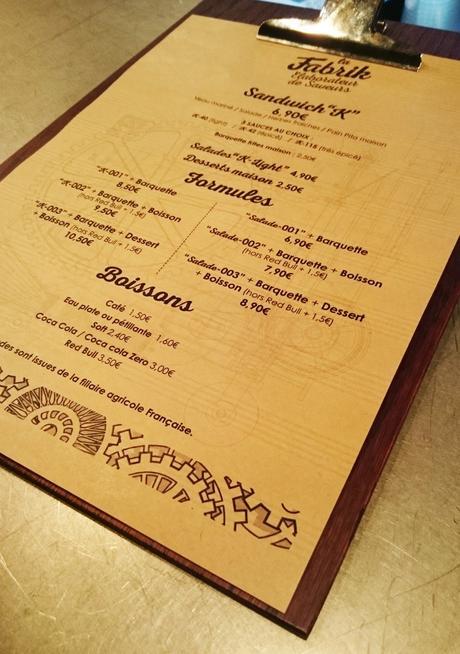 la
Fabrik
Elaborateur
de Saveurs
Sandwich "K"
6,90€
Veau mariné / Salade / Herbes fraîches / Pain Pita maison
3 SAUCES AU CHOIX
K-40 (light) / K-42 (épicé) / K-115 (très épicé)
Barquette frites maison : 2,50€
Salades "K-Light" 4,90€
Desserts maison 2,50€
Formules
"K-001" + Barquette
8,50€
"K-002" + Barquette + Boisson
(hors Red Bull + 1,5€)
9,50€
"K-003" + Barquette + Dessert
+ Boisson (hors Red Bull + 1,5€)
10,50€
"Salade-001" + Barquette
6,90€
"Salade-002" + Barquette + Boisson
(hors Red Bull + 1,5€)
7,90€
"Salade-003" + Barquette + Dessert
+ Boisson (hors Red Bull + 1,5€)
8,90€
Boissons
Café 1,50€
Eau plate ou pétillante 1,60€
Soft 2,40€
Coca Cola / Coca cola Zero 3,00€
Red Bull 3,50€
des sont issues de la filiaire agricole Française.